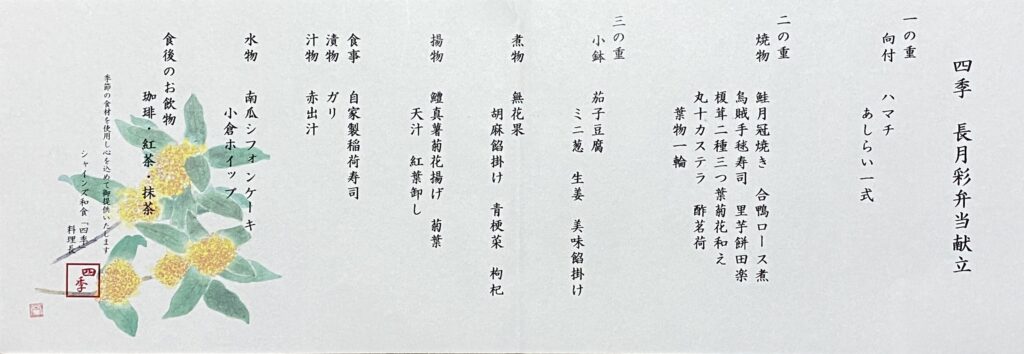 四季　長月彩弁当献立
一の重
向付　ハマチ
あしらい一式
二の重
焼物　鮭月冠焼き　合鴨ロース煮
烏賊手毬寿司　里芋餅田楽
榎茸二種三つ葉菊花和え
丸十カステラ　酢茗荷
葉物一輪
三の重
小鉢　茄子豆腐
ミニ葱　生姜　美味餡掛け
煮物　無花果
胡麻餡掛け　青梗菜　枸杞
揚物　鱧真薯菊花揚げ　菊葉
天汁　紅葉卸し
食事　自家製稲荷寿司
漬物　ガリ
汁物　赤出汁
水物　南瓜シフォンケーキ
小倉ホイップ
食後のお飲物
珈琲・紅茶・抹茶
季節の食材を使用し心を込めて御提供いたします
シャインズ和食「四季」
料理長
四季